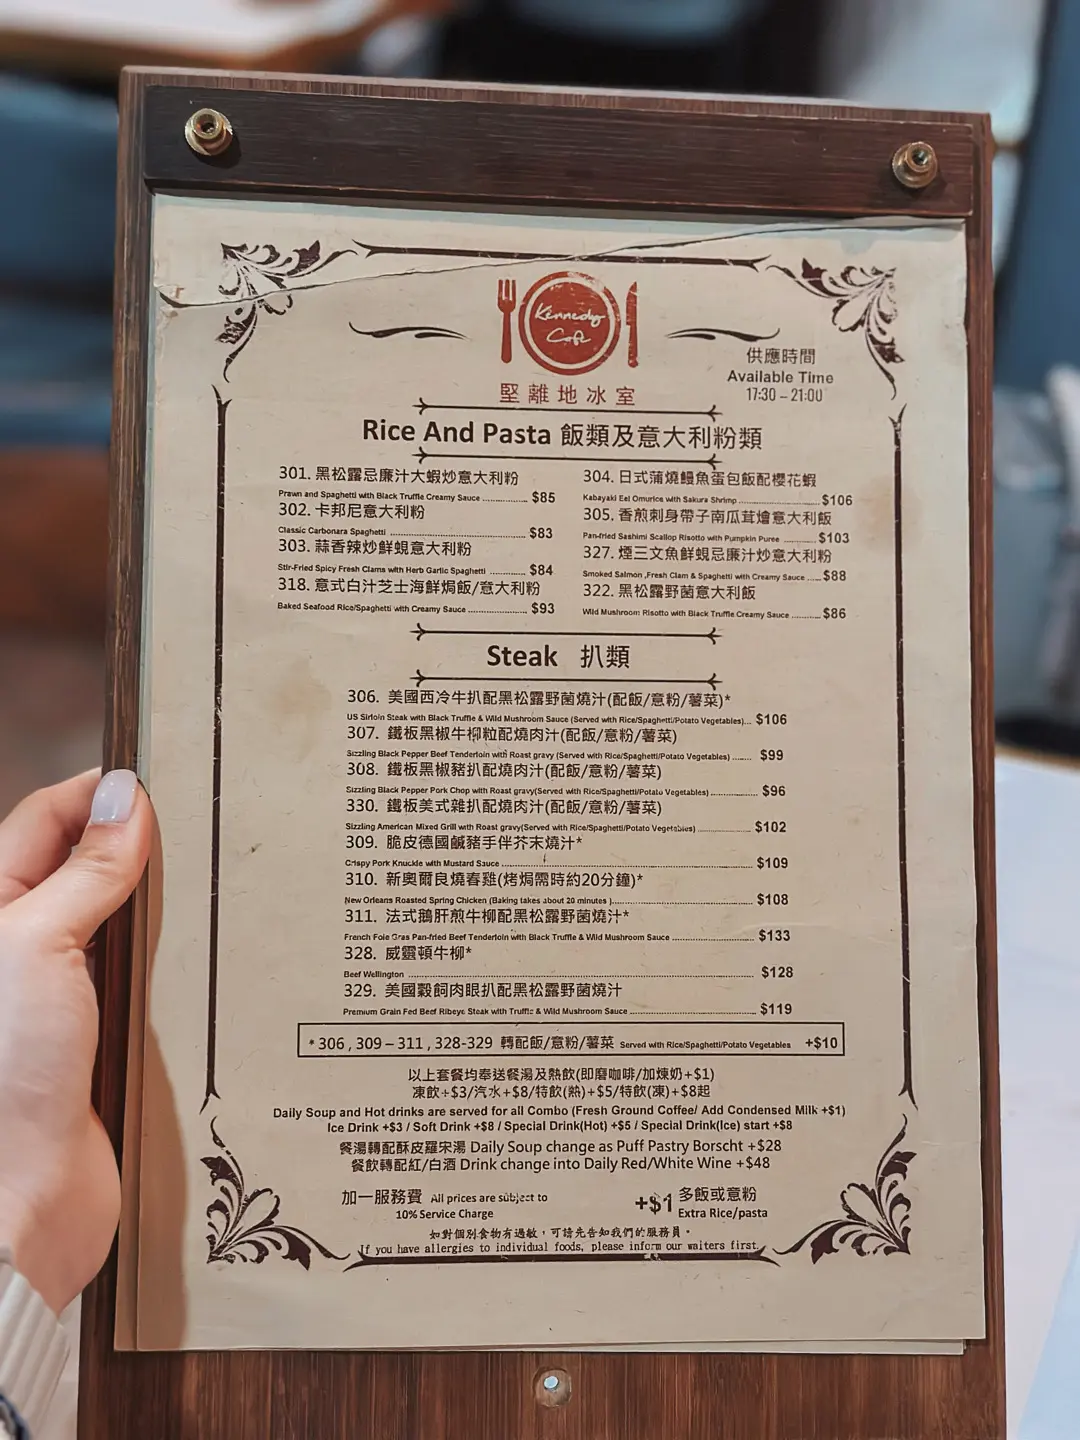 Kennedy
Cafe
堅離地冰室
供應時間
Available Time
17:30 – 21:00
Rice And Pasta 飯類及意大利粉類
301. 黑松露忌廉汁大蝦炒意大利粉
Prawn and Spaghetti with Black Truffle Creamy Sauce ................ $85
302. 卡邦尼意大利粉
Classic Carbonara Spaghetti ................ $83
303. 蒜香辣炒鮮蜆意大利粉
Stir-Fried Spicy Fresh Clams with Herb Garlic Spaghetti ................ $84
318. 意式白汁芝士海鮮焗飯/意大利粉
Baked Seafood Rice/Spaghetti with Creamy Sauce ................ $93
304. 日式蒲燒鰻魚蛋包飯配櫻花蝦
Kabayaki Eel Omurice with Sakura Shrimp ................ $106
305. 香煎刺身帶子南瓜茸燴意大利飯
Pan-fried Sashimi Scallop Risotto with Pumpkin Puree ........... $103
327. 煙三文魚鮮蜆忌廉汁炒意大利粉
Smoked Salmon ,Fresh Clam & Spaghetti with Creamy Sauce ..... $88
322. 黑松露野菌意大利飯
Wild Mushroom Risotto with Black Truffle Creamy Sauce .......... $86
Steak 扒類
306. 美國西冷牛扒配黑松露野菌燒汁(配飯/意粉/薯菜)*
US Sirloin Steak with Black Truffle & Wild Mushroom Sauce (Served with Rice/Spaghetti/Potato Vegetables)... $106
307. 鐵板黑椒牛柳粒配燒肉汁(配飯/意粉/薯菜)
Sizzling Black Pepper Beef Tenderloin with Roast gravy (Served with Rice/Spaghetti/Potato Vegetables) ....... $99
308. 鐵板黑椒豬扒配燒肉汁(配飯/意粉/薯菜)
Sizzling Black Pepper Pork Chop with Roast gravy(Served with Rice/Spaghetti/Potato Vegetables) ................ $96
330. 鐵板美式雜扒配燒肉汁(配飯/意粉/薯菜)
Sizzling American Mixed Grill with Roast gravy(Served with Rice/Spaghetti/Potato Vegetables) ................ $102
309. 脆皮德國鹹豬手伴芥末燒汁*
Crispy Pork Knuckle with Mustard Sauce ................ $109
310. 新奧爾良燒春雞(烤焗需時約20分鐘)*
New Orleans Roasted Spring Chicken (Baking takes about 20 minutes ) ................ $108
311. 法式鵝肝煎牛柳配黑松露野菌燒汁*
French Foie Gras Pan-fried Beef Tenderloin with Black Truffle & Wild Mushroom Sauce ................ $133
328. 威靈頓牛柳*
Beef Wellington ................ $128
329. 美國穀飼肉眼扒配黑松露野菌燒汁
Premium Grain Fed Beef Ribeye Steak with Truffle & Wild Mushroom Sauce ................ $119
* 306 , 309 – 311 , 328-329 轉配飯/意粉/薯菜 Served with Rice/Spaghetti/Potato Vegetables +$10
以上套餐均奉送餐湯及熱飲(即磨咖啡/加煉奶+$1)
凍飲+$3/汽水+$8/特飲(熱)+$5/特飲(凍)+$8起
Daily Soup and Hot drinks are served for all Combo (Fresh Ground Coffee/ Add Condensed Milk +$1)
Ice Drink +$3 / Soft Drink +$8 / Special Drink(Hot) +$5 / Special Drink(Ice) start +$8
餐湯轉配酥皮羅宋湯 Daily Soup change as Puff Pastry Borscht +$28
餐飲轉配紅/白酒 Drink change into Daily Red/White Wine +$48
加一服務費 All prices are subject to
10% Service Charge
+$1 多飯或意粉
Extra Rice/pasta
如對個別食物有過敏，可請先告知我們的服務員。
If you have allergies to individual foods, please inform our waiters first.